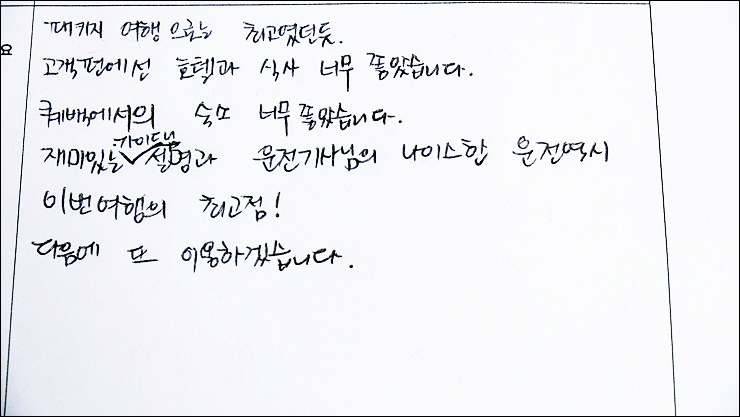 패키지 여행 으로는 최고였던듯.
고객편에선 호텔과 식사 너무 좋았습니다.
퀘백에서의 숙소 너무 좋았습니다.
재미있는 가이드님 설명과 운전기사님의 나이스한 운전역시
이번여행의 최고점!
다음에 또 이용하겠습니다.
요